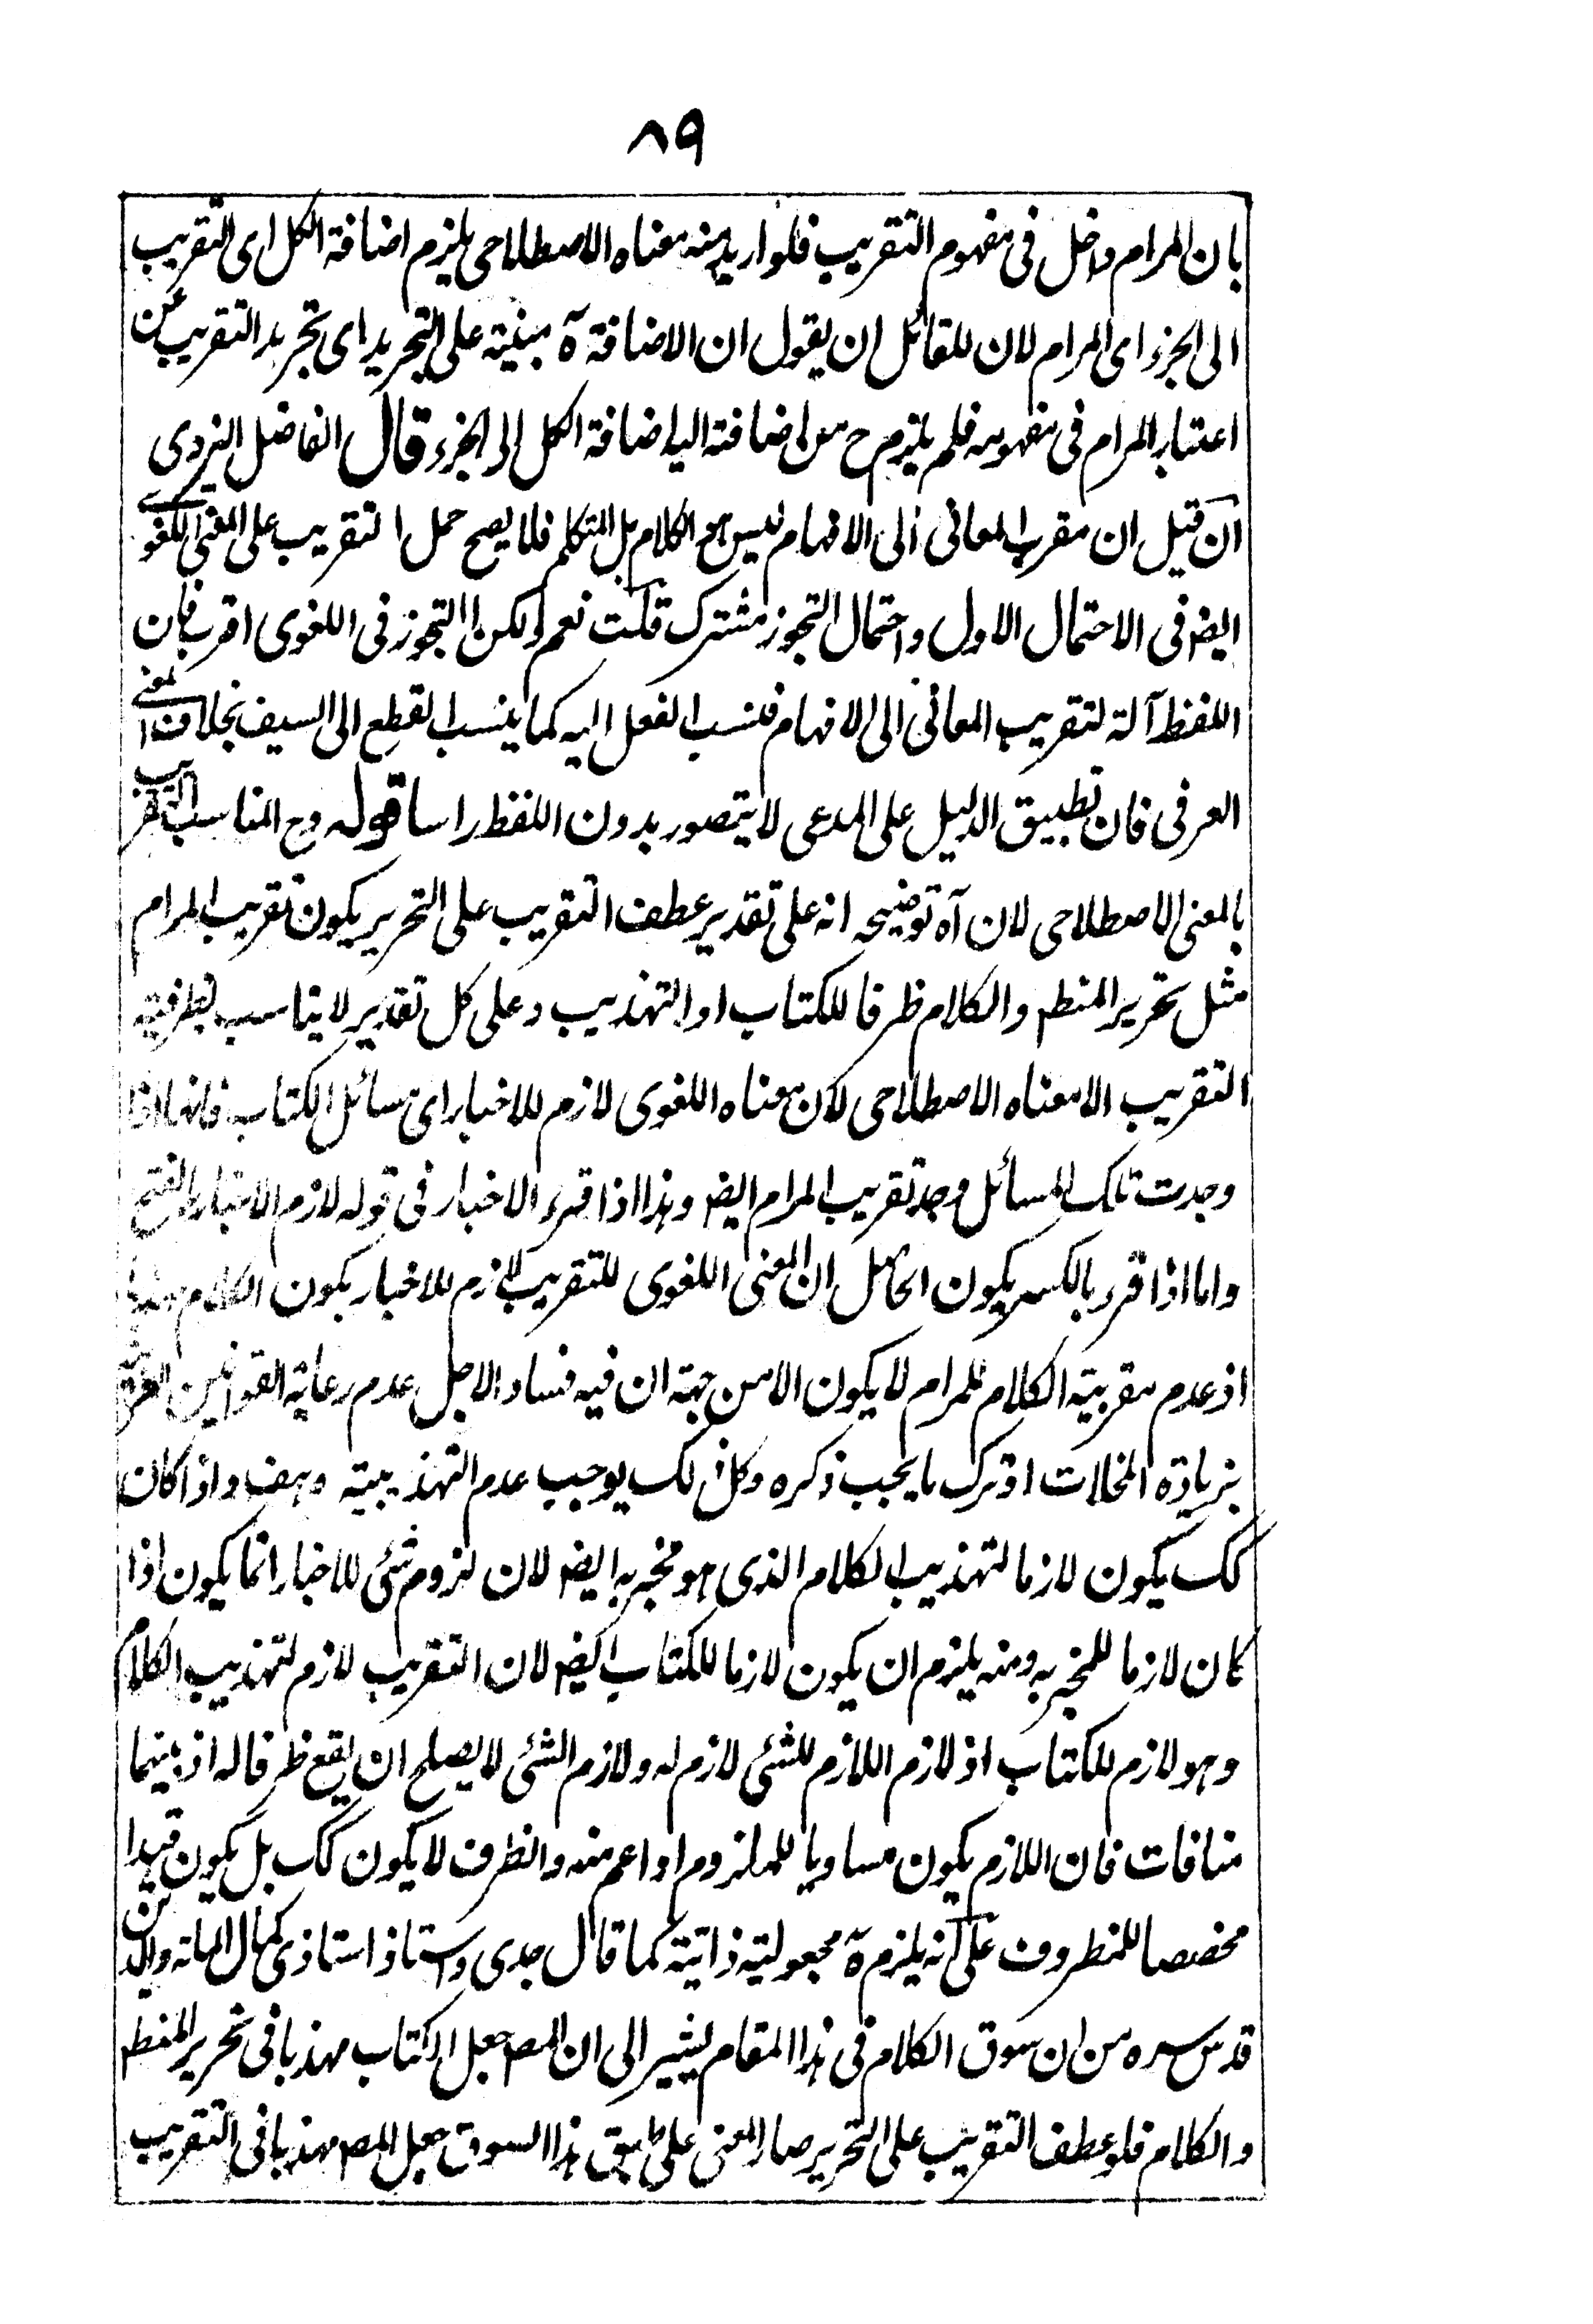 ٨٩
بان المرام داخل فى مفهوم التقريب فلو اريد منه معناه الاصطلاحى يلزم اضافة الكل اى التقريب
الى الجزء اى المرام لان للقائل ان يقول ان الاضافة ه مبنية على التجريد اى تجريد التقريب عن
اعتبار المرام فى مفهومه فلم يلزم ح من اضافته اليه اضافة الكل الى الجزء قال الفاضل اليزدى
ان قيل ان مقرب المعانى الى الافهام ليس هو الكلام بل المتكلم فلا يصح حمل التقريب على المعنى اللغوى
ايضا فى الاحتمال الاول واحتمال التجوز مشترك قلت نعم ولكن التجوز فى اللغوى اقرب فان
اللفظ آلة لتقريب المعانى الى الافهام فلنسب الفعل اليه كما ينسب القطع الى السيف بخلاف المعنى
العرفى فان تطبيق الدليل على المدعى لا يتصور بدون اللفظ راسا قوله وح المناسب التقريب
بالمعنى الاصطلاحى لان آه توضيحه انه على تقدير عطف التقريب على التحرير يكون تقريب المرام
مثل تحرير المنطق والكلام ظرفا للكتاب او التهذيب وعلى كل تقدير لا يناسب بظرفية
التقريب الا معناه الاصطلاحى لان معناه اللغوى لازم للاخبار اى مسائل الكتاب فانها اذا
وجدت تلك المسائل وجد تقريب المرام ايضا وهذا اذا قرء الاخبار فى قوله لازم الاخبار بالفتح
واما اذا قرء بالكسر يكون الحاصل ان المعنى اللغوى للتقريب لازم للاخبار بكون الكلام
اذ عدم مقربية الكلام للمرام لا يكون الا من جهة ان فيه فساد الاجل عدم رعاية القوانين العربية
بزيادة المخلات او ترك ما يجب ذكره وكل ذلك يوجب عدم التهذيبية وهف واذا كان
كك يكون لازما لتهذيب الكلام الذى هو مخبر به ايضا لان لزوم شئى للاخبار انما يكون اذا
كان لازما للمخبر به ومنه يلزم ان يكون لازما للكتاب ايضا لان التقريب لازم لتهذيب الكلام
وهو لازم للكتاب اذ لازم اللازم للشئى لازم له ولازم الشئى لا يصلح ان يقع ظرفا له اذ بينهما
منافات فان اللازم يكون مساويا للملزوم او اعم منه والظرف لا يكون كك بل يكون قيدا
مخصصا للمظروف على انه يلزم ه مجعولية ذاتية كما قال جدى واستاذ استاذى كمال الملة والدين
قدس سره من ان سوق الكلام فى هذا المقام يشير الى ان المص جعل الكتاب مهذبا فى تحرير المنطق
والكلام فلو عطف التقريب على التحرير صار المعنى على طبق هذا السوق جعل المص مهذبا فى التقريب